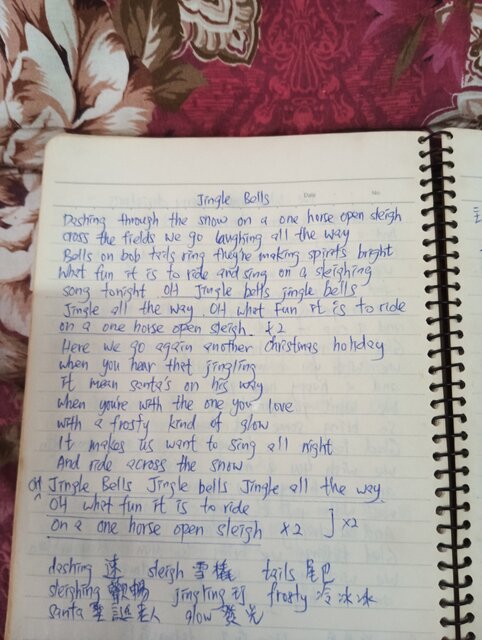 Jingle Bells
Date No.
Dashing through the snow on a one horse open sleigh
cross the fields we go laughing all the way
Bells on bob tails ring they're making spirits bright
What fun it is to ride and sing on a sleighing
song tonight. OH Jingle bells jingle bells
Jingle all the way. OH what fun it is to ride
on a one horse open sleigh. x2
Here we go again another christmas holiday
when you hear that jingling
it mean santa's on his way
when you're with the one you love
with a frosty kind of glow
It makes us want to sing all night
And ride across the snow
OH Jingle Bells Jingle bells Jingle all the way
OH what fun it is to ride
on a one horse open sleigh x2 ] x2
dashing 速 sleigh 雪橇 tails 尾巴
sleighing 歡暢 jingling frosty 冷冰冰
santa 聖誕老人 glow 發光